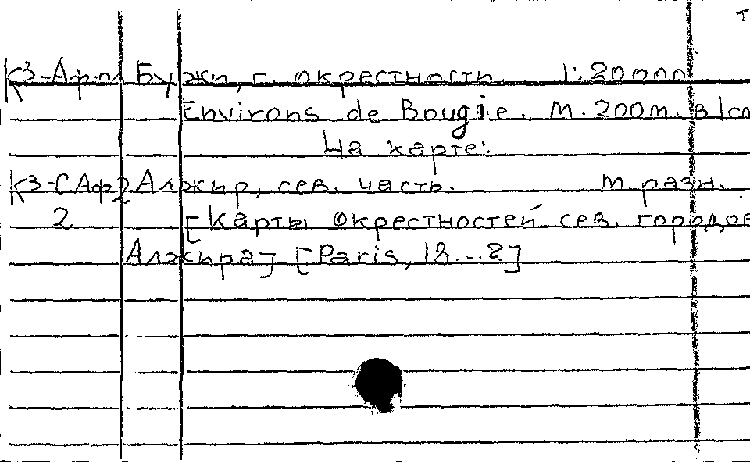 К3-Афр Бужи, г. окрестности 1:20000
Environs de Bougie. М. 200м. в 1см
На карте:
К3-САф Алжир, сев. часть. М разн.
2 [Карты окрестностей сев. городов
Алжира] [Paris, 18...?]